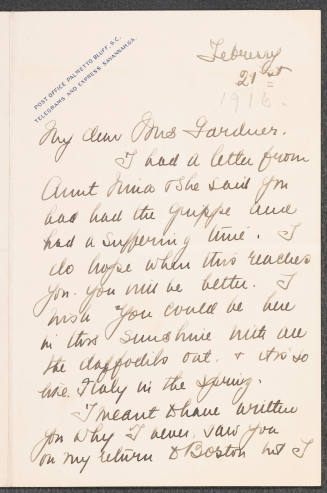 POST OFFICE PALMETTO BLUFF, S.C.
TELEGRAMS AND EXPRESS SAVANNAH, GA.
February
21st
1916.
My dear Mrs Gardner.
I had a letter from
Aunt Nina & She said you
had had the grippe and
had a suffering time. I
do hope when this reaches
you. you will be better. I
wish you could be here
in this sunshine with all
the daffodils out. & it's so
like Italy in the spring.
I meant to have written
you why I never saw you
on my return to Boston but I